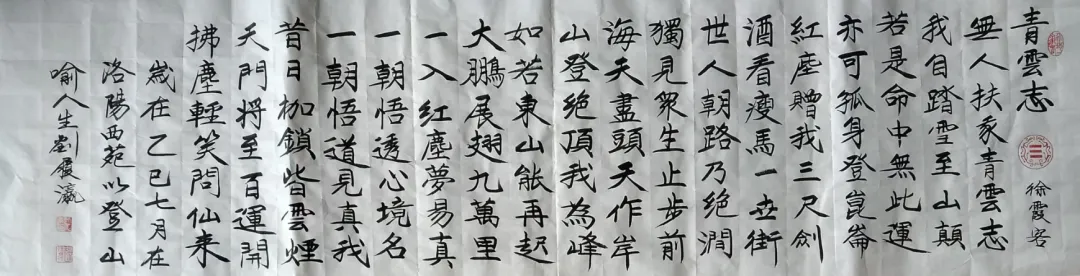 青雲志
徐霞客
無人扶我青雲志
我自踏雪至山顛
若是命中無此運
亦可孤身登崑崙
紅塵贈我三尺劍
酒看瘦馬一世街
世人朝路乃絕澗
獨見衆生止步前
海天盡頭天作岸
山登絕頂我為峰
如若東山能再起
大鵬展翅九萬里
一入紅塵夢易真
一朝悟透心境名
一朝悟道見真我
昔日枷鎖皆雲煙
天門將至百運開
拂塵輕笑問仙来
歲在乙巳七月在
洛陽西苑以登山
喻人生劉履瀛